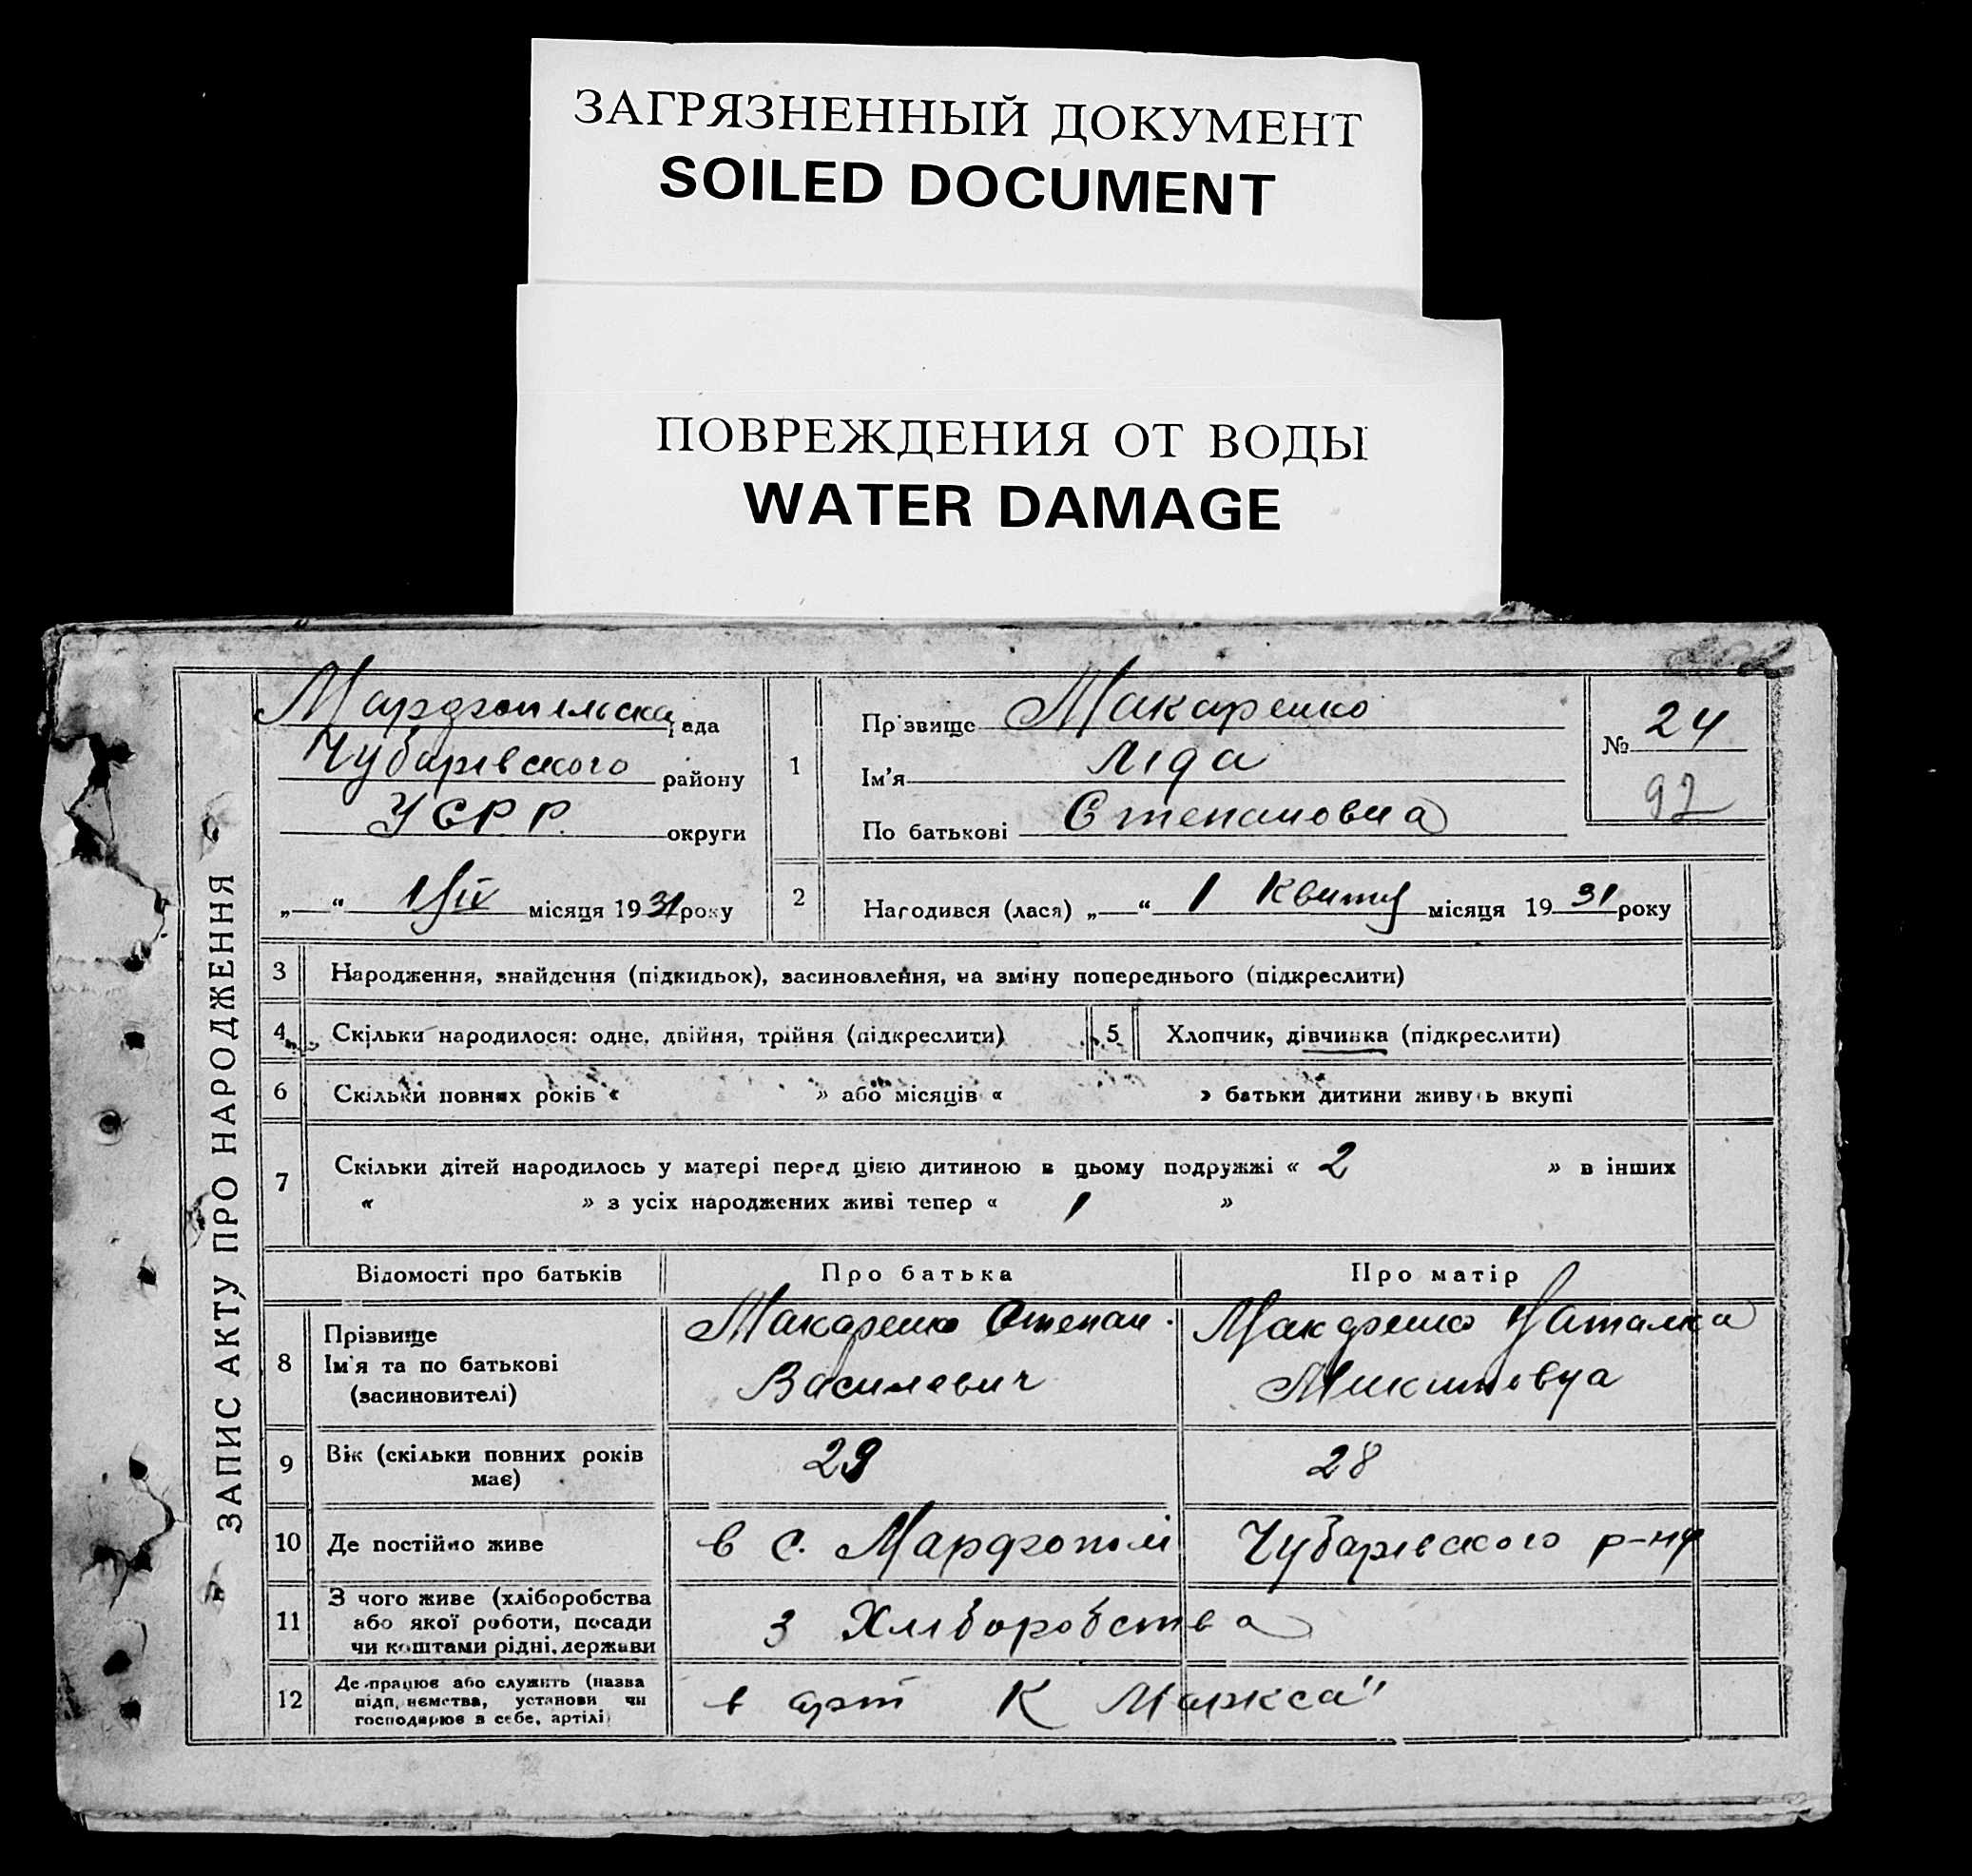 ЗАГРЯЗНЕННЫЙ ДОКУМЕНТ
SOILED DOCUMENT
ПОВРЕЖДЕНИЯ ОТ ВОДЫ
WATER DAMAGE
ЗАПИС АКТУ ПРО НАРОДЖЕННЯ
Марфопільска рада
Чубарівського району
УСРР. округи
„ “ 1/IV місяця 1931 року
1
Прізвище Макаренко
Ім'я Ліда
По батькові Степановна
№ 24
97
2
Народився (лася) „ “ 1 Квитня місяця 1931 року
3 Народження, знайдення (підкидьок), засиновлення, на зміну попереднього (підкреслити)
4 Скільки народилося: одне, двійня, трійня (підкреслити)
5 Хлопчик, дівчинка (підкреслити)
6 Скільки повних років « » або місяців « » батьки дитини живуть вкупі
7 Скільки дітей народилось у матері перед цією дитиною в цьому подружжі « 2 » в інших
« » з усіх народжених живі тепер « 1 »
Відомості про батьків Про батька Про матір
8 Прізвище
Ім'я та по батькові
(засиновителі)
Макаренко Степан
Василевич
Макаренко Наталка
Микитовна
9 Вік (скільки повних років
має)
29 28
10 Де постійно живе в с. Марфополі Чубарівского р-ну
11 З чого живе (хліборобства
або якої роботи, посади
чи коштами рідні, держави
з Хліборобства
12 Де працює або служить (назва
підприємства, установи чи
господарює в себе, артілі)
в арт К Маркса"